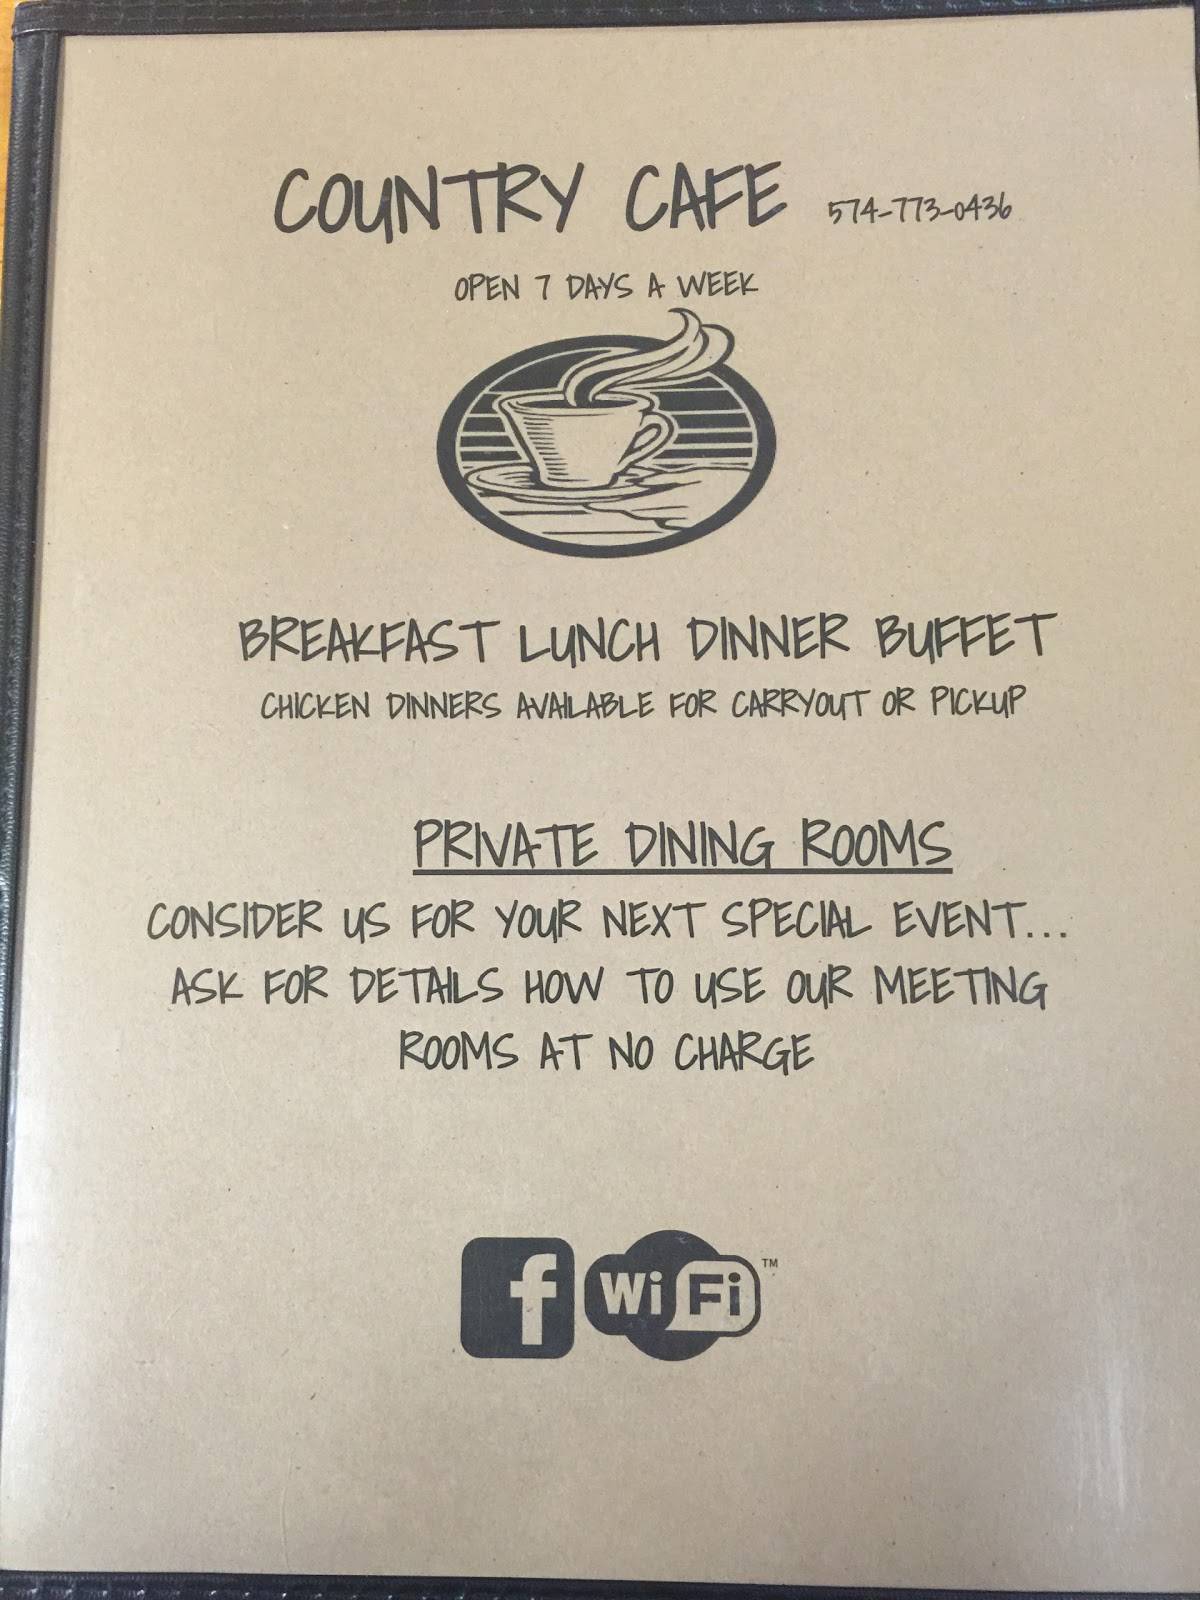 COUNTRY CAFE 574-773-0436
OPEN 7 DAYS A WEEK
BREAKFAST LUNCH DINNER BUFFET
CHICKEN DINNERS AVAILABLE FOR CARRYOUT OR PICKUP
PRIVATE DINING ROOMS
CONSIDER US FOR YOUR NEXT SPECIAL EVENT...
ASK FOR DETAILS HOW TO USE OUR MEETING
ROOMS AT NO CHARGE
f Wi Fi ™